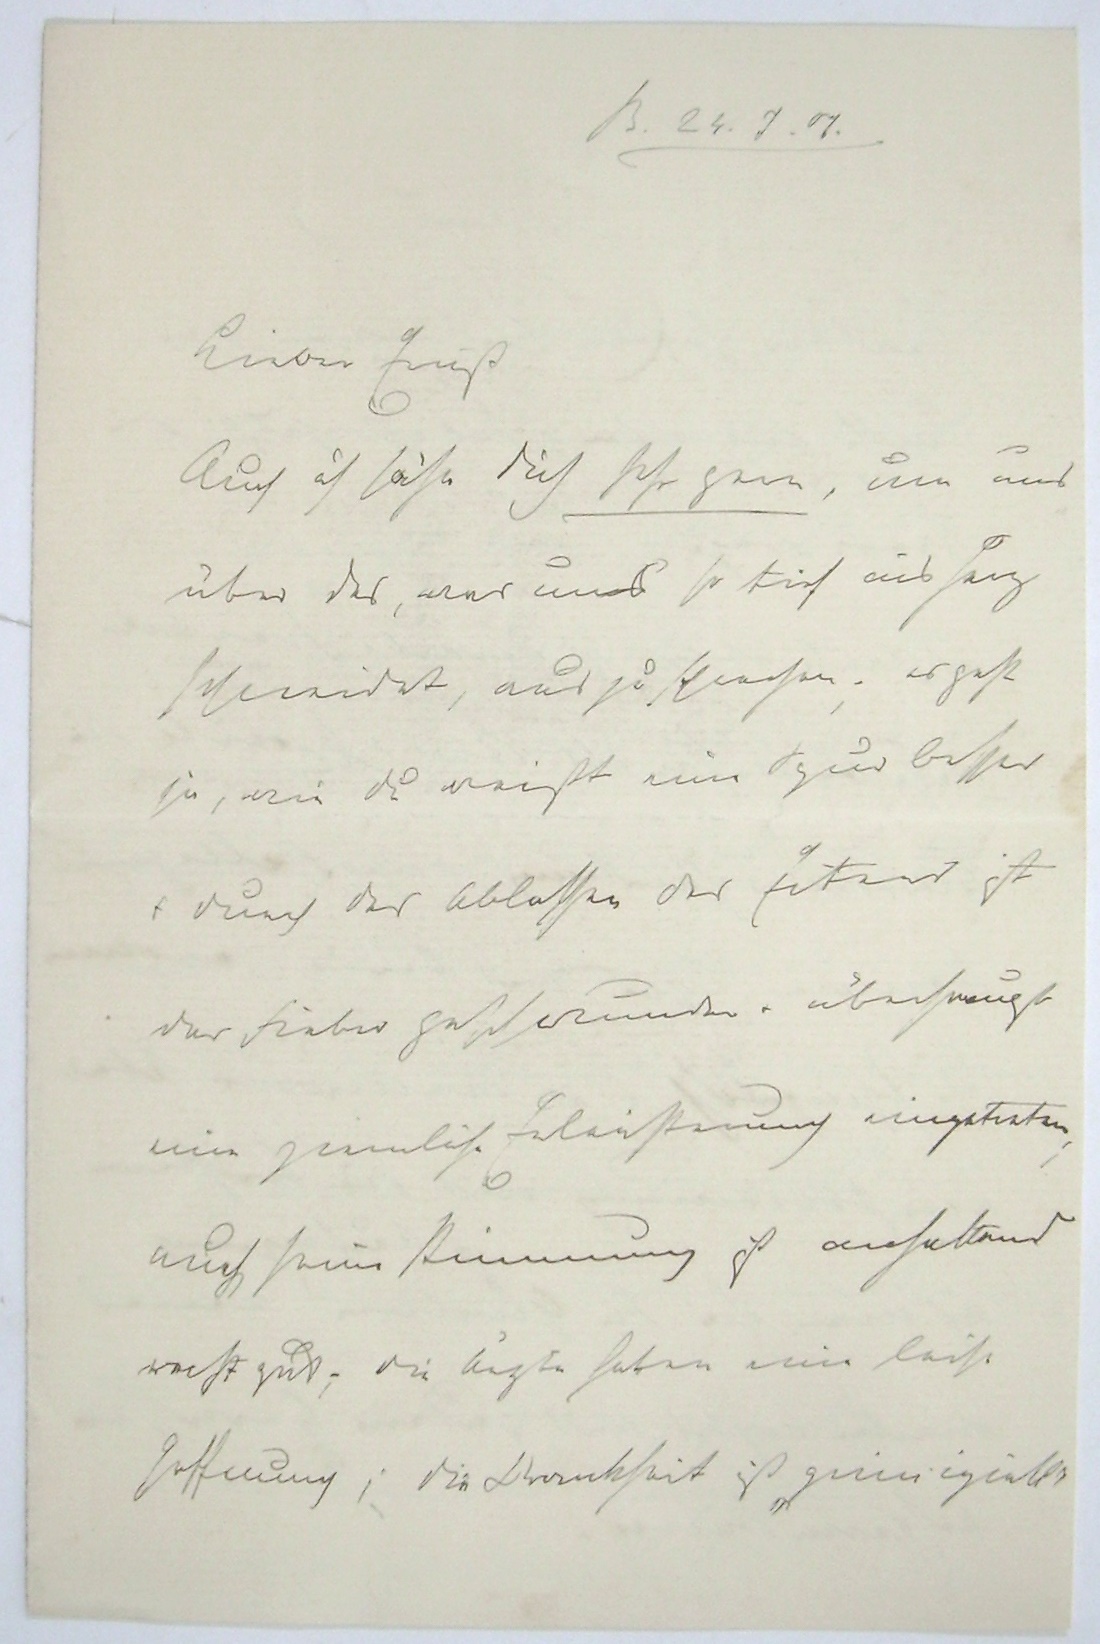 B. 24. 7. 07.
Lieber Ernst
Auch ich sähe dich sehr gern, um uns
über das, was uns so tief ins Herz
schneidet, auszusprechen; es geht
ja, wie du weißt eine Spur besser
+ durch das Ablassen des Eiters ist
das Fieber geschwunden + überhaupt
eine ziemliche Erleichterung eingetreten,
auch seine Stimmung ist anhaltend
recht gut; die Ärzte haben eine leise
Hoffnung; die Krankheit ist „